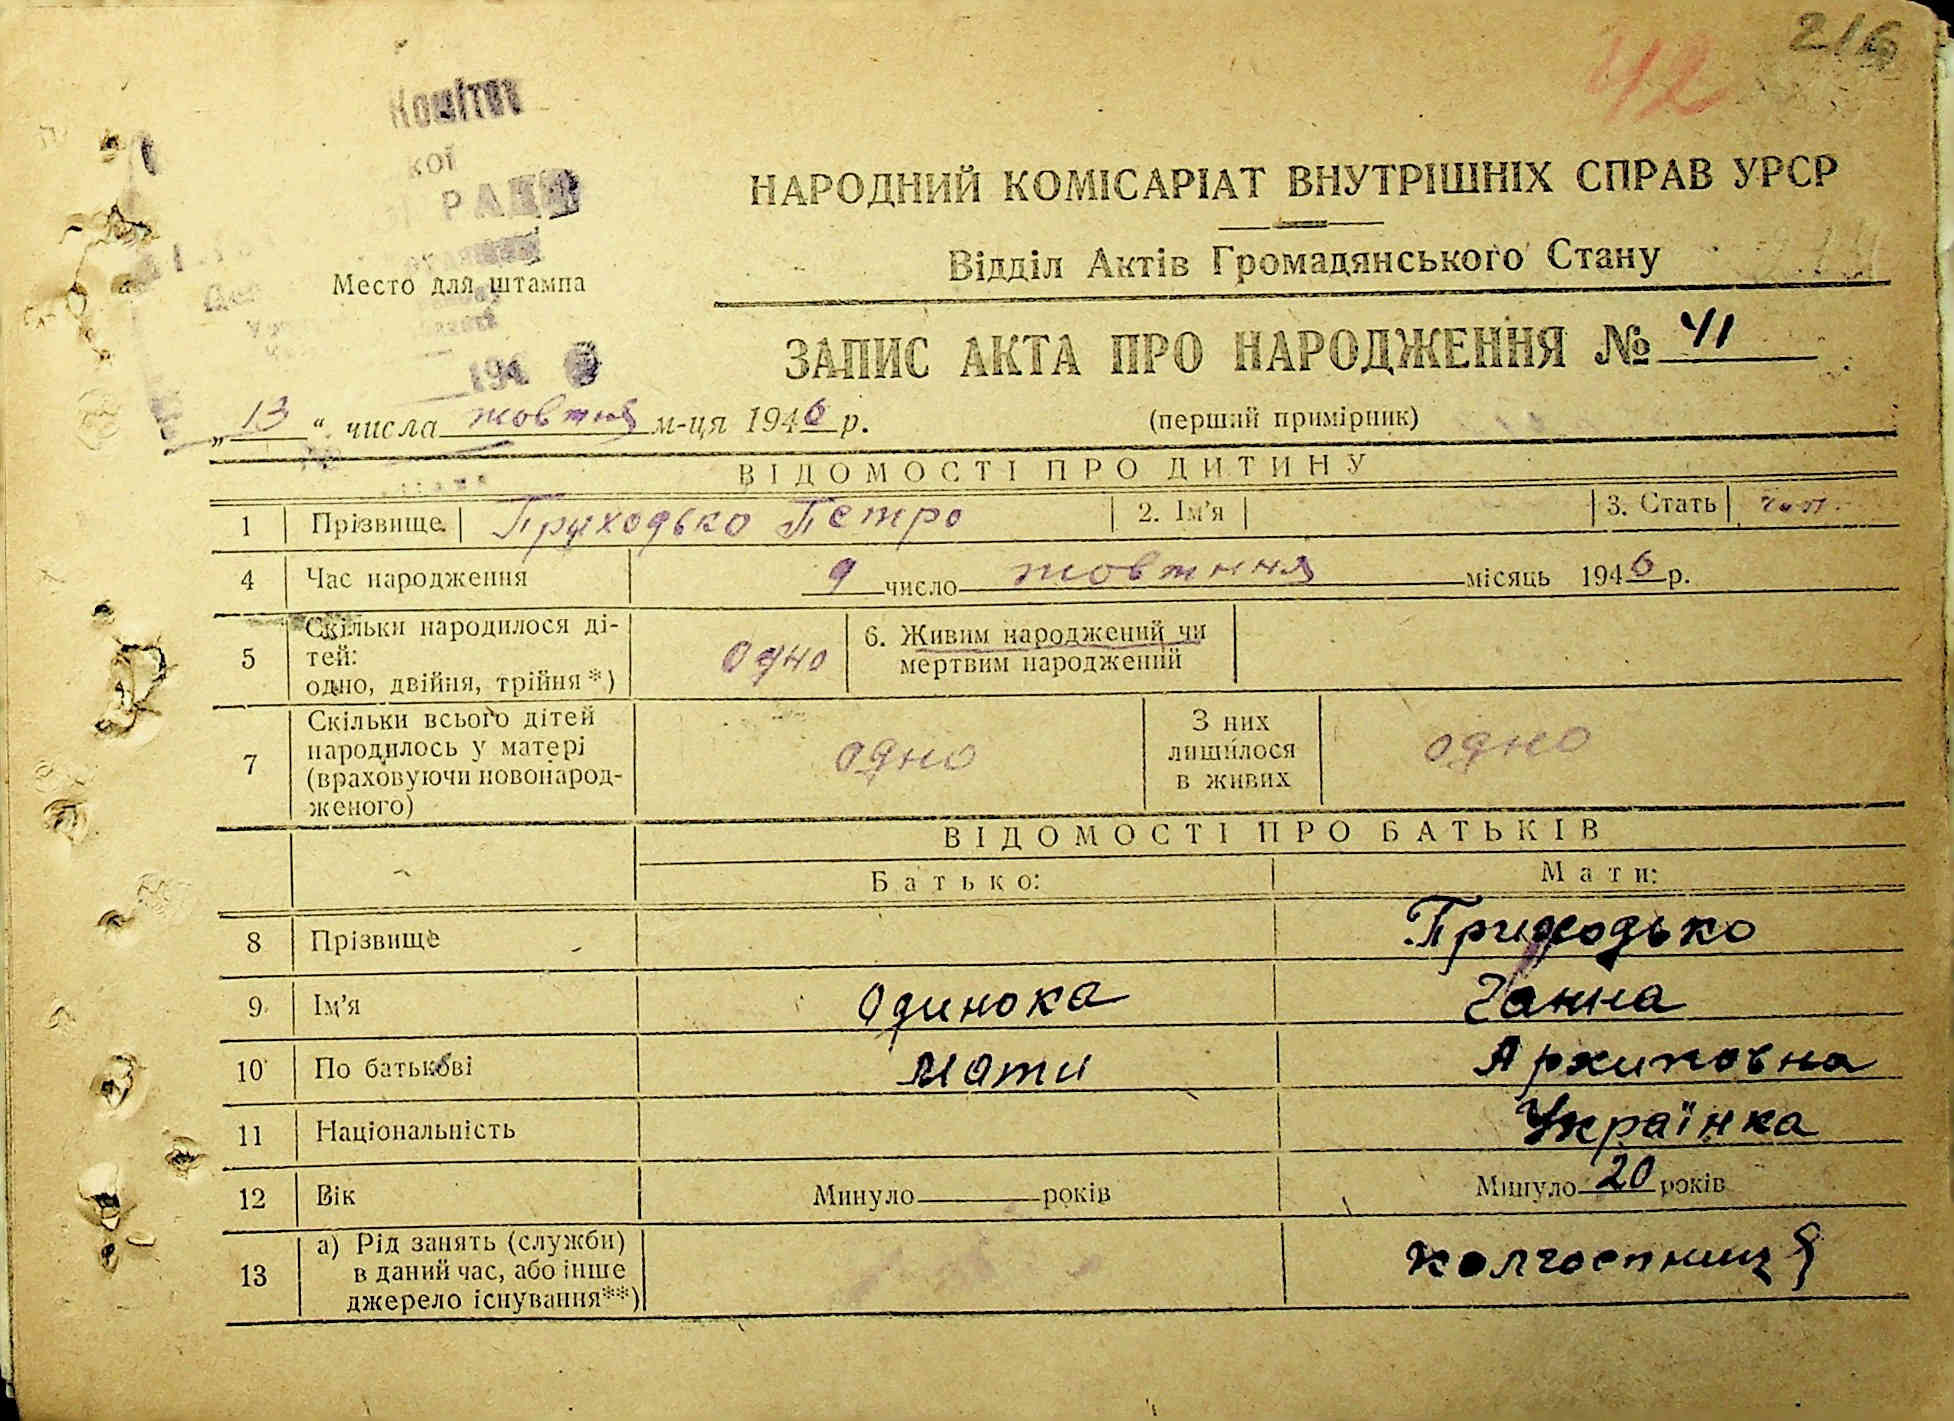 216
42
Комітет
кої
РАДИ
194
НАРОДНИЙ КОМІСАРІАТ ВНУТРІШНІХ СПРАВ УРСР
Відділ Актів Громадянського Стану
Место для штампа
ЗАПИС АКТА ПРО НАРОДЖЕННЯ № 41
„13“ числа жовтня м-ця 1946 р. (перший примірник)
ВІДОМОСТІ ПРО ДИТИНУ
1 Прізвище Приходько Петро 2. Ім'я 3. Стать чол.
4 Час народження 9 число жовтння місяць 1946 р.
5 Скільки народилося ді-
тей:
одно, двійня, трійня *) одно 6. Живим народжений чи
мертвим народжений
7 Скільки всього дітей
народилось у матері
(враховуючи новонарод-
женого) одно З них
лишилося
в живих одно
ВІДОМОСТІ ПРО БАТЬКІВ
Батько: Мати:
8 Прізвище Приходько
9 Ім'я Одинока Ганна
10 По батькові мати Архиповна
11 Національність Українка
12 Вік Минуло років Минуло 20 років
13 а) Рід занять (служби)
в даний час, або інше
джерело існування**) колгоспниця